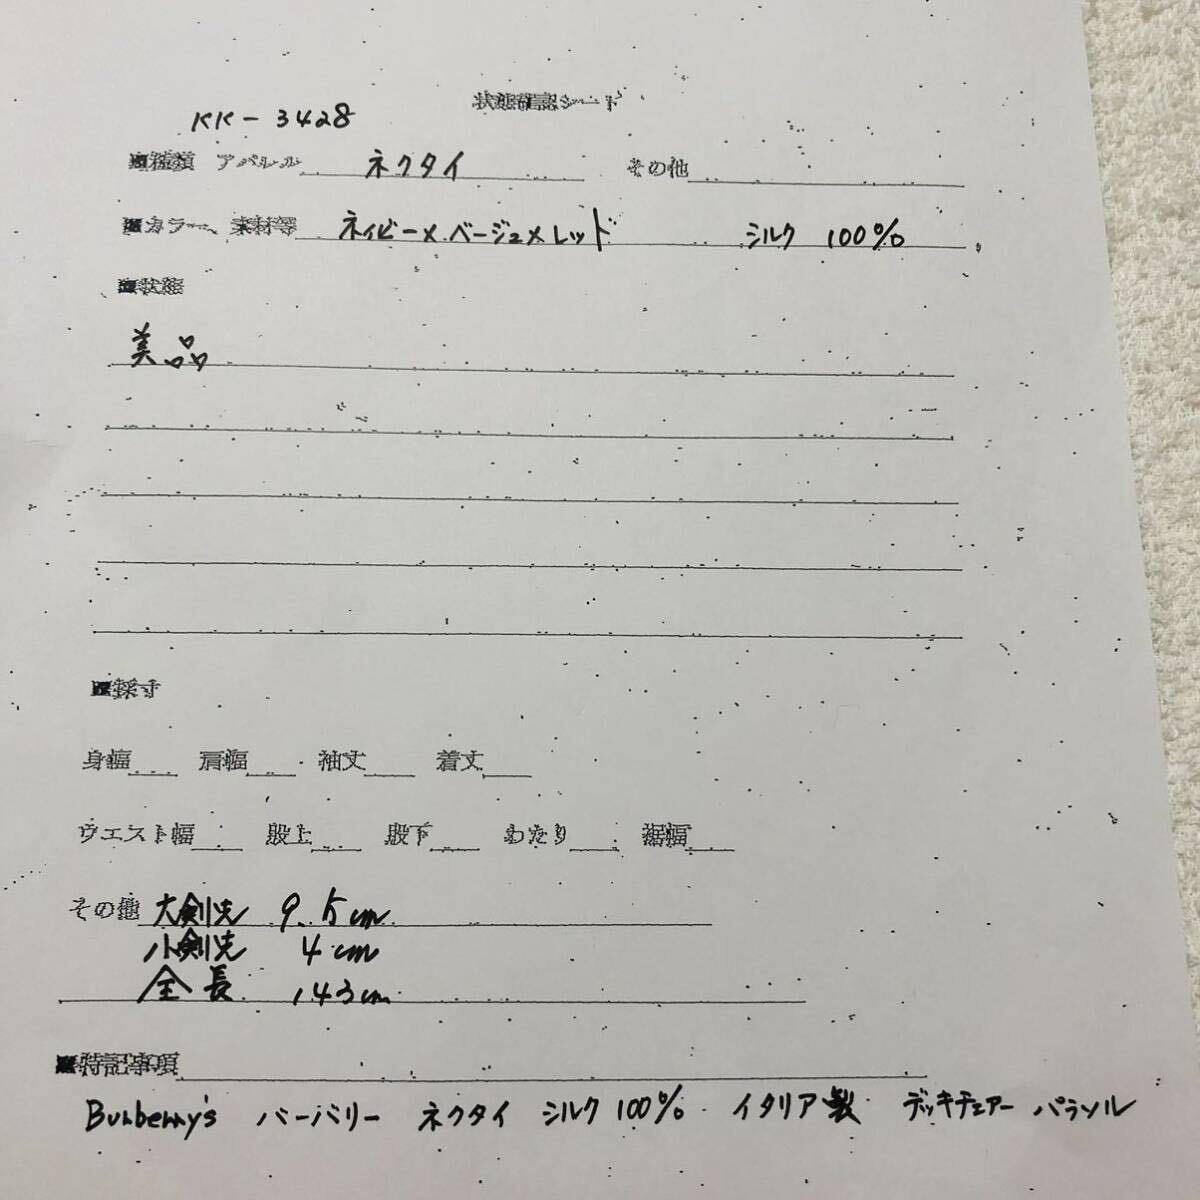 状態確認シート
KK-3428
■種類 アパレル ネクタイ その他
■カラー、素材等 ネイビー×ベージュ×レッド シルク 100%
■状態
美品
■採寸
身幅 肩幅 袖丈 着丈
ウエスト幅 股上 股下 わたり 裾幅
その他 大剣先 9.5cm
小剣先 4cm
全長 143cm
■特記事項
Burberry's バーバリー ネクタイ シルク100% イタリア製 デッキチェアー パラソル